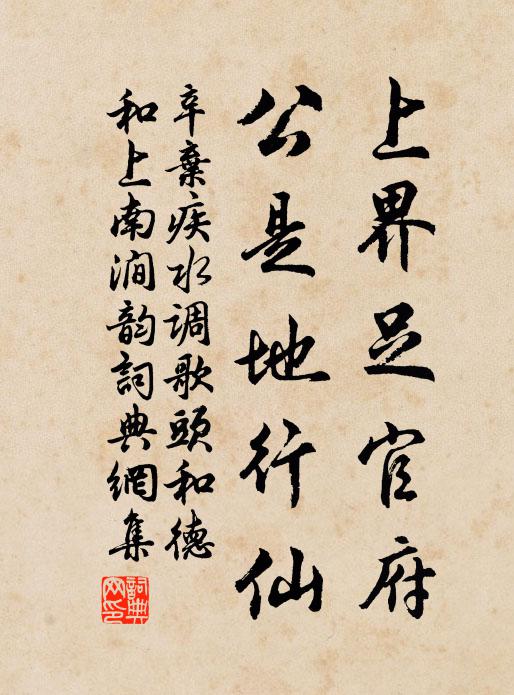 上界足官府
公是地行仙
辛棄疾水调歌頭和德
和上南澗韵詞典網集
詞典网印